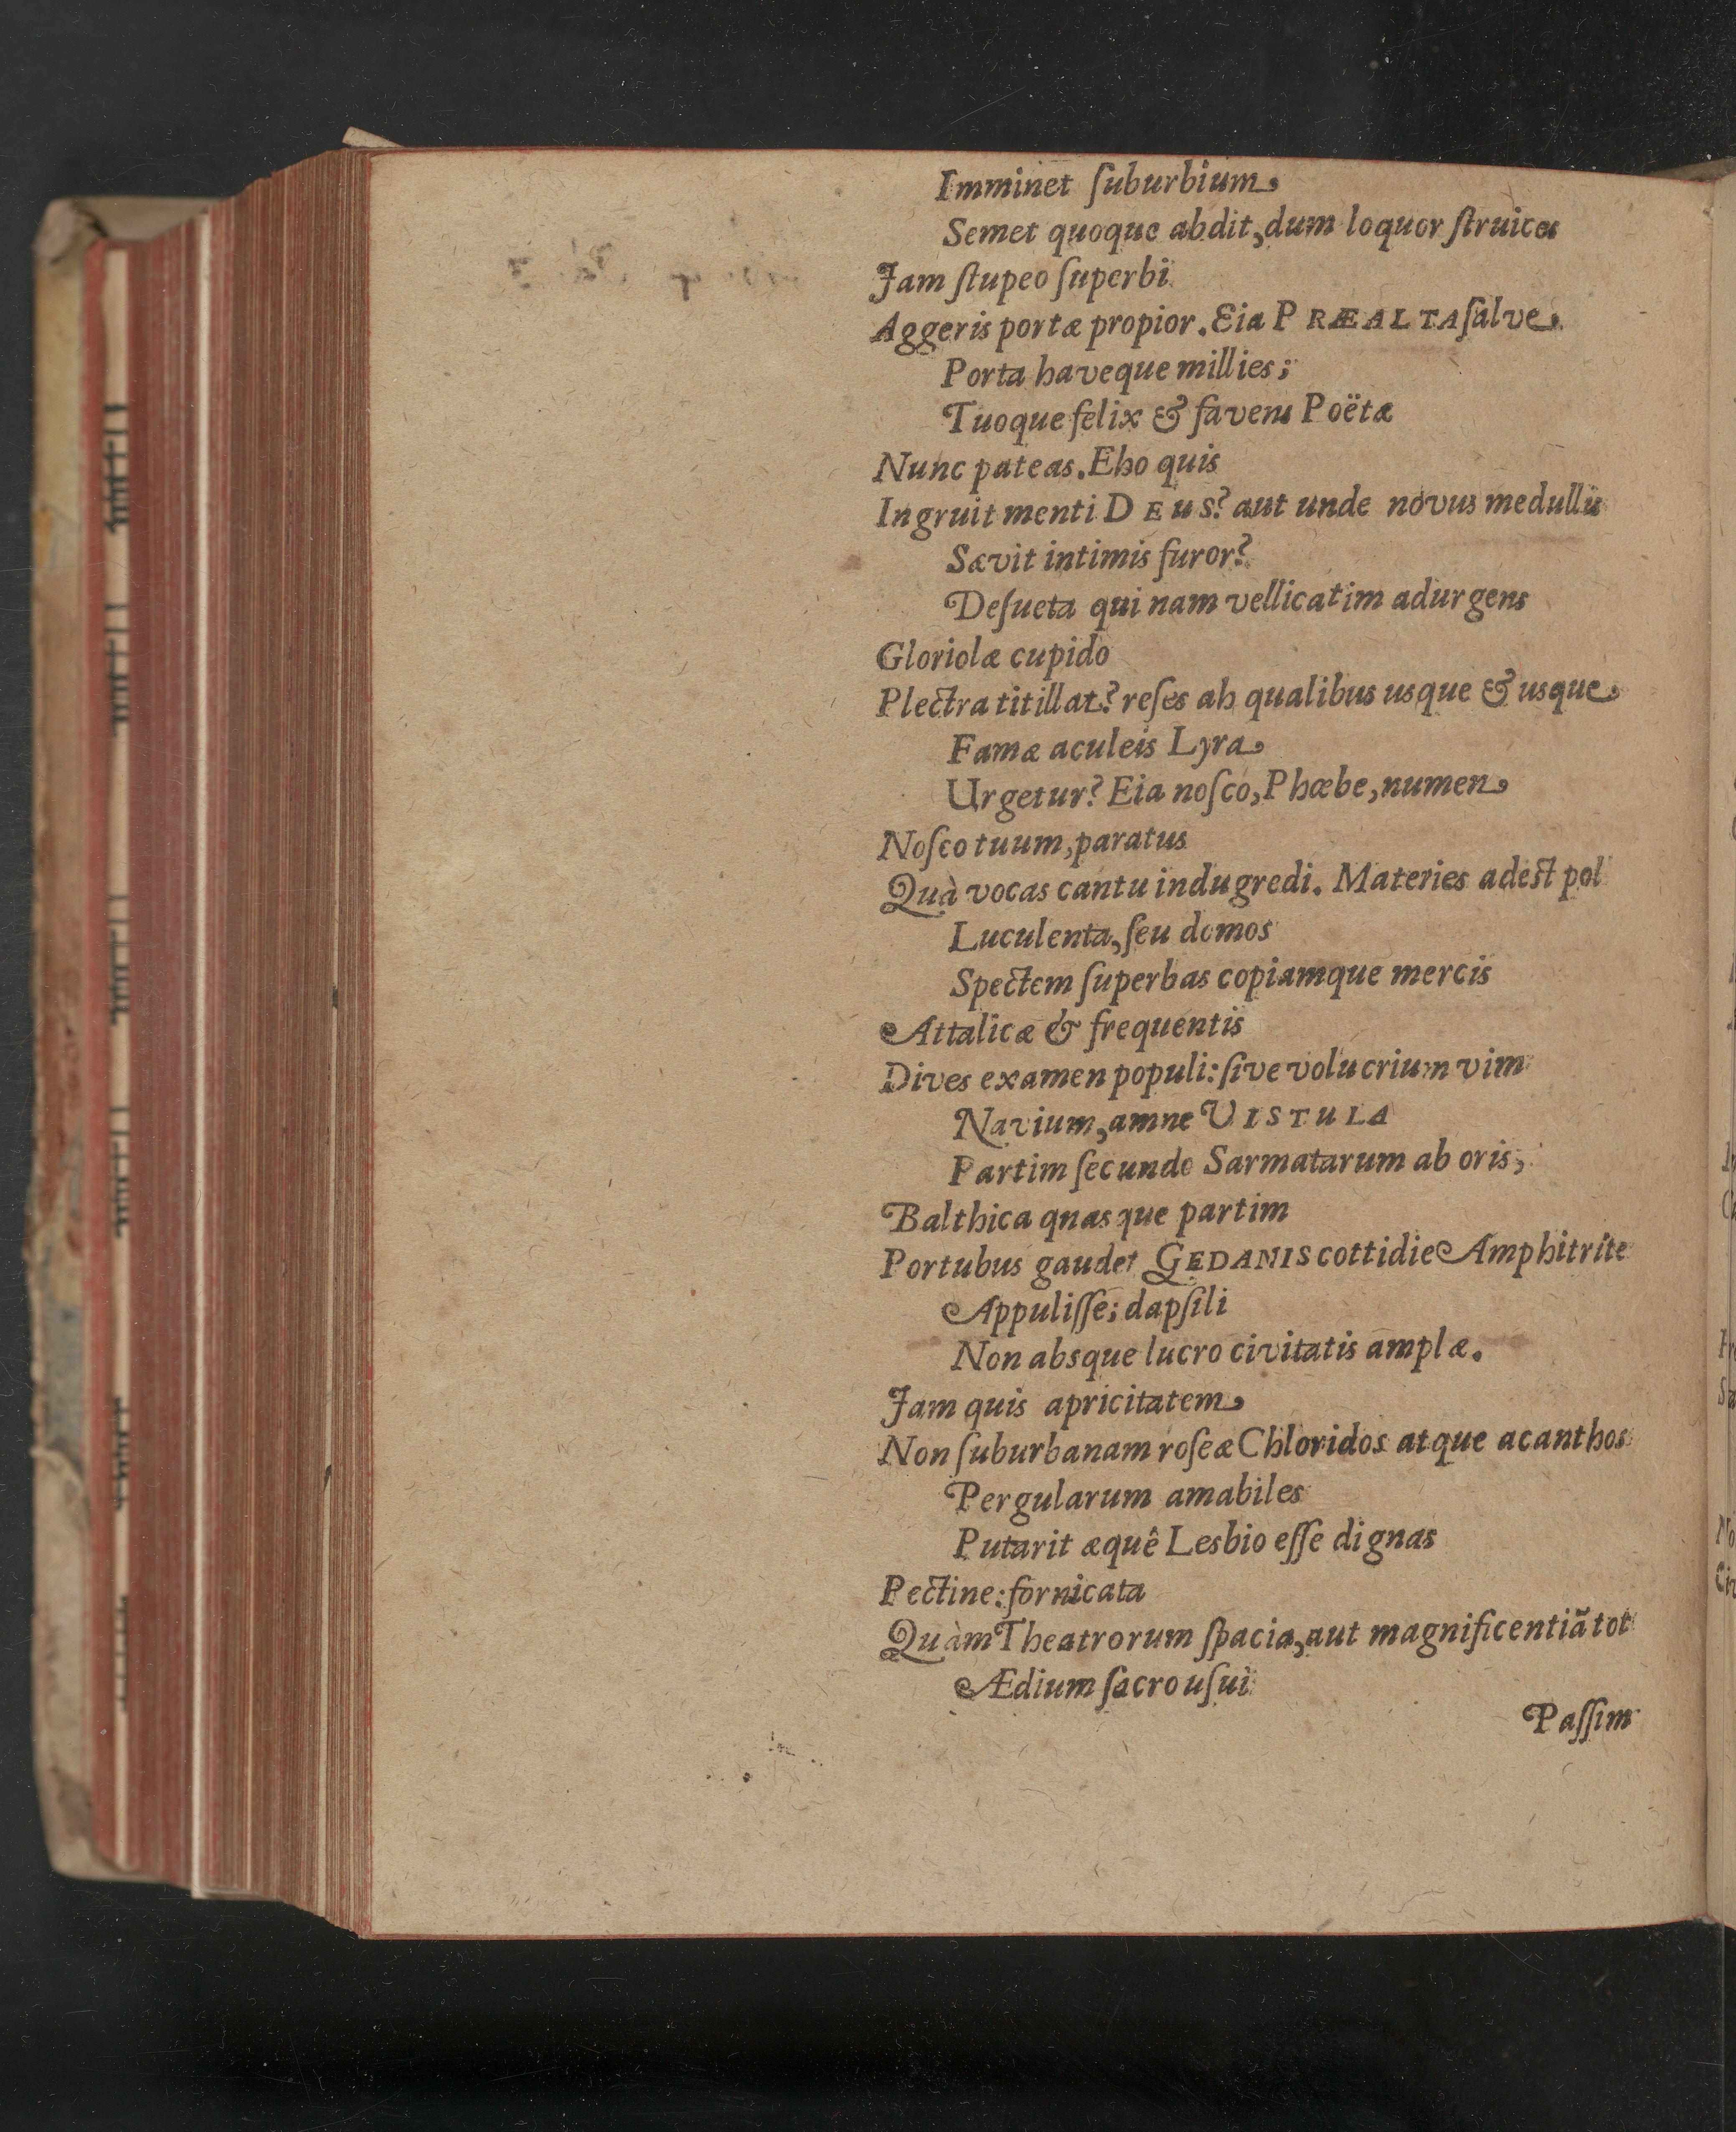 Imminet ſuburbium,
Semet quoque abdit, dum loquor ſtruices
Jam ſtupeo ſuperbi
Aggeris portæ propior. Eia PRÆALTA ſalve,
Porta haveque millies;
Tuoque felix & favens Poëtæ
Nunc pateas. Eho quis
Ingruit menti DEUS? aut unde novus medullis
Sævit intimis furor?
Deſueta qui nam vellicatim adurgens
Gloriolæ cupido
Plectra titillat? reſes ah qualibus usque & usque,
Famæ aculeis Lyra,
Urgetur? Eia noſco, Phœbe, numen,
Noſco tuum, paratus
Quà vocas cantu indugredi. Materies adeſt pol
Luculenta, ſeu domos
Spectem ſuperbas copiamque mercis
Attalicæ & frequentis
Dives examen populi: ſive volucrium vim
Navium, amne VISTULA
Partim ſecundo Sarmatarum ab oris,
Balthica qnas que partim
Portubus gaudet GEDANIS cottidie Amphitrite
Appuliſſe; dapſili
Non absque lucro civitatis amplæ.
Jam quis apricitatem,
Non ſuburbanam roſeæ Chloridos atque acanthos
Pergularum amabiles
Putarit æquê Lesbio eſſe dignas
Pectine: fornicata
Quàm Theatrorum ſpacia, aut magnificentiã tot
Ædium ſacro uſui
Paſſim